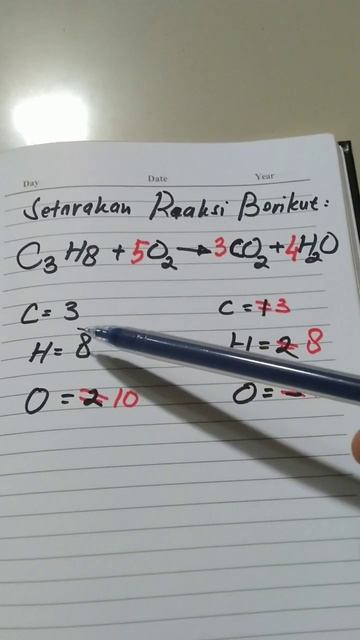 Day Date Year
Setarakan Reaksi Berikut:
C₃H8 + 5O₂ → 3CO₂ + 4H₂O
C = 3 C = 1 3
H = 8 H = 2 8
O = 2 10 O =